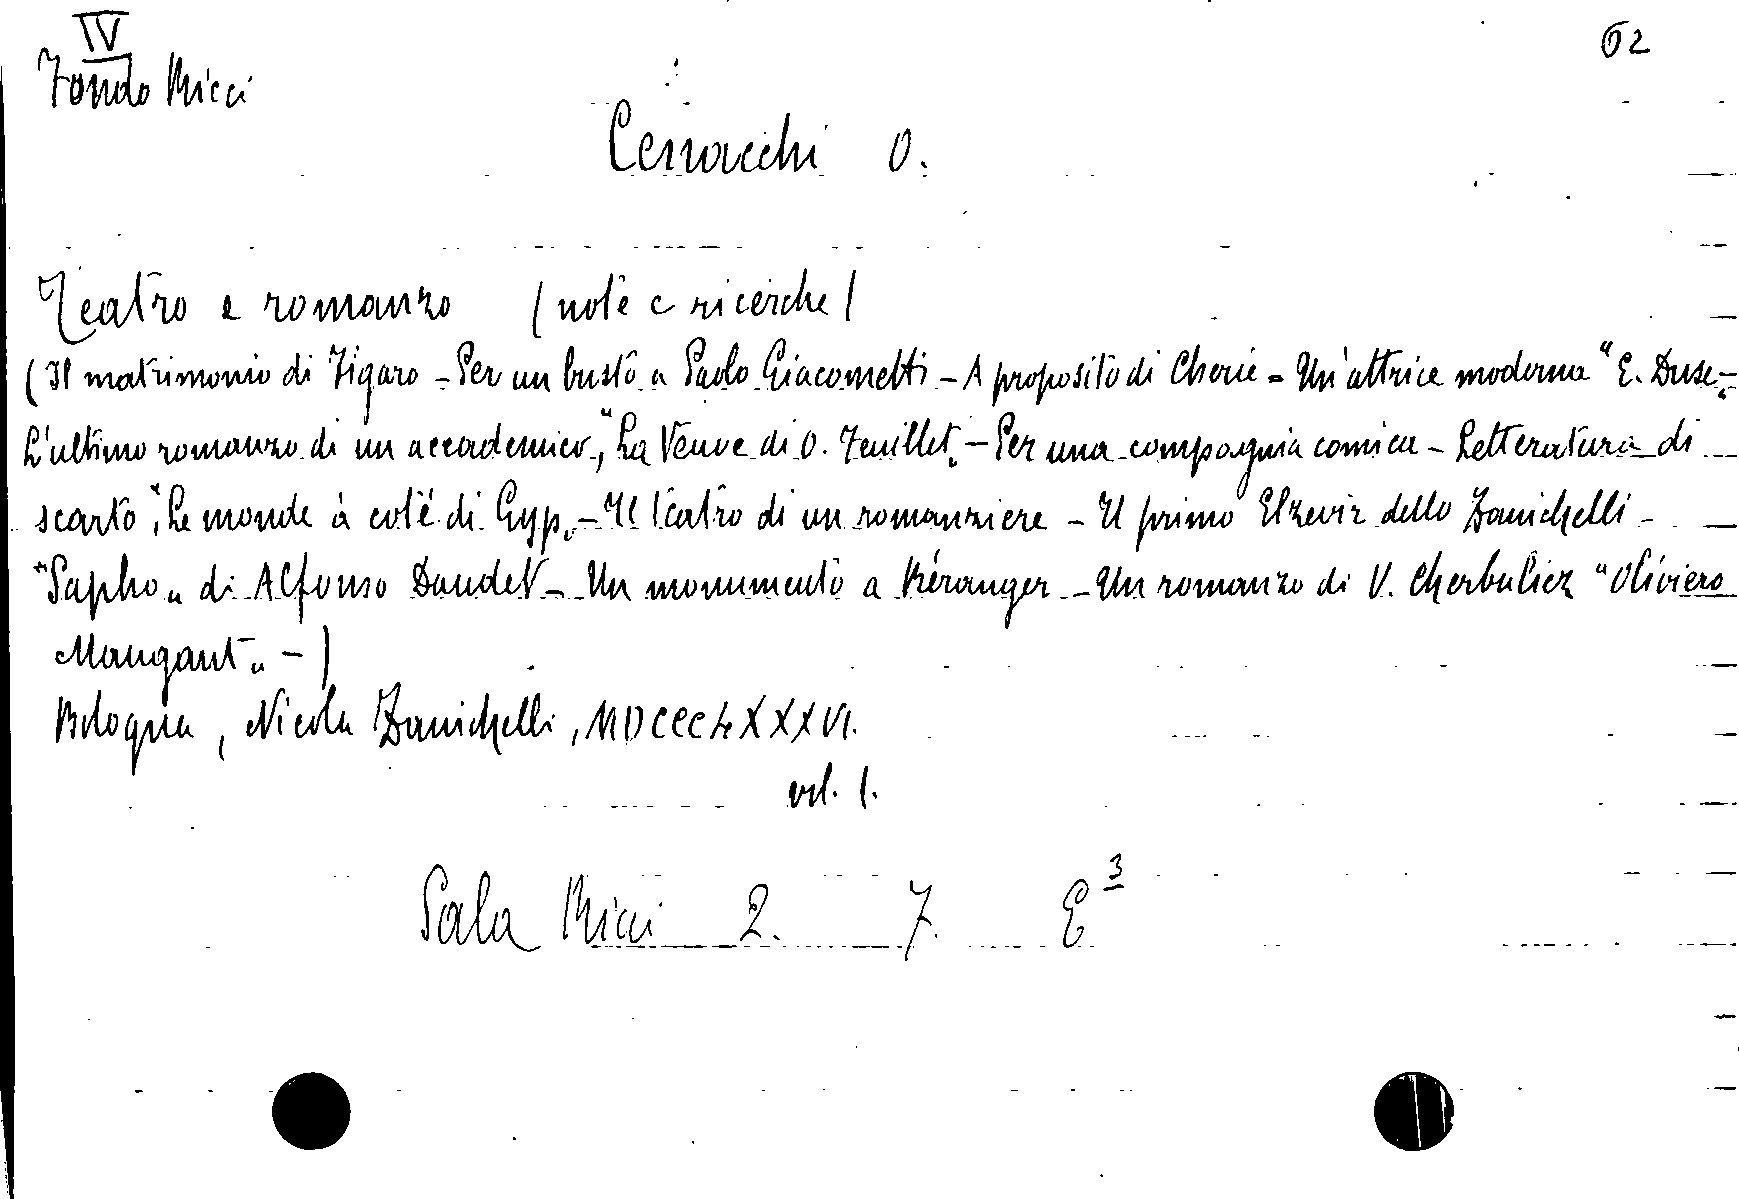 IV
62
Fondo Ricci
Cerracchi O.
Teatro e romanzo (note e ricerche)
(Il matrimonio di Figaro - Per un busto a Paolo Giacometti - A proposito di Cherie - Un'attrice moderna "E. Duse" -
L'ultimo romanzo di un accademico, "La Veuve di O. Feuillet" - Per una compagnia comica - Letteratura di
scarto, "Le monde à coté di Gyp" - Il teatro di un romanziere - Il primo Elzevir dello Zanichelli -
"Sapho" di Alfonso Daudet - Un monumento a Béranger - Un romanzo di V. Cherbuliez "Oliviero
Maugant" - )
Bologna, Nicola Zanichelli, MDCCCLXXXVI.
vol. 1.
Sala Ricci 2. 7. E 3